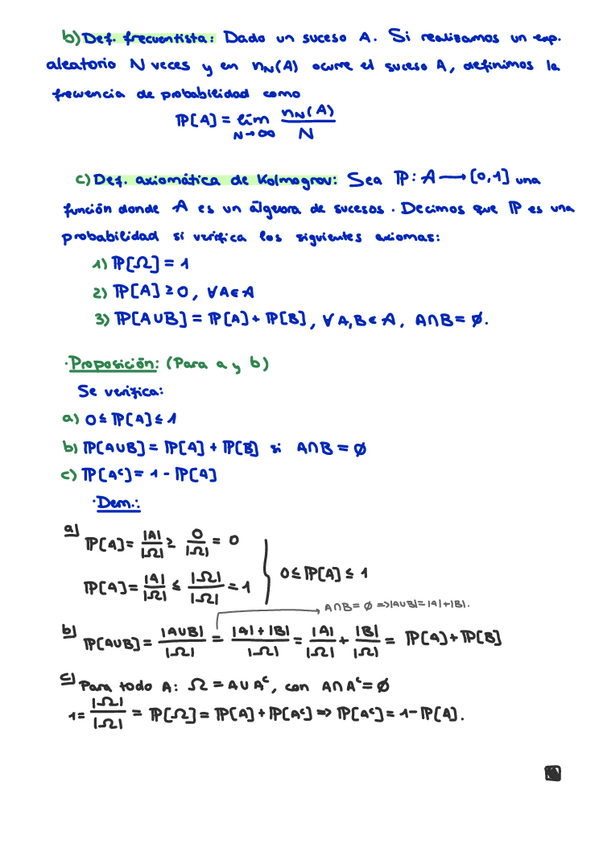 b) Def. frecuentista: Dado un suceso A. Si realizamos un exp.
aleatorio N veces y en n_N(A) ocurre el suceso A, definimos la
frecuencia de probabilidad como
ℙ[A] = lím_{N→∞} n_N(A)/N
c) Def. axiomática de Kolmogrov: Sea ℙ: A ⟶ [0,1] una
función donde A es un álgebra de sucesos. Decimos que ℙ es una
probabilidad si verifica los siguientes axiomas:
1) ℙ[Ω] = 1
2) ℙ[A] ≥ 0, ∀A∈A
3) ℙ[A∪B] = ℙ[A] + ℙ[B], ∀A,B∈A, A∩B = ∅.
· Proposición: (Para a y b)
Se verifica:
a) 0 ≤ ℙ[A] ≤ 1
b) ℙ[A∪B] = ℙ[A] + ℙ[B] si A∩B = ∅
c) ℙ[Aᶜ] = 1 - ℙ[A]
· Dem.:
a) ℙ[A] = |A|/|Ω| ≥ 0/|Ω| = 0
ℙ[A] = |A|/|Ω| ≤ |Ω|/|Ω| = 1 } 0 ≤ ℙ[A] ≤ 1
A∩B = ∅ ⇒ |A∪B| = |A| + |B|.
b) ℙ[A∪B] = |A∪B|/|Ω| = |A| + |B|/|Ω| = |A|/|Ω| + |B|/|Ω| = ℙ[A] + ℙ[B]
c) Para todo A: Ω = A∪Aᶜ, con A∩Aᶜ = ∅
1 = |Ω|/|Ω| = ℙ[Ω] = ℙ[A] + ℙ[Aᶜ] ⇒ ℙ[Aᶜ] = 1 - ℙ[A].